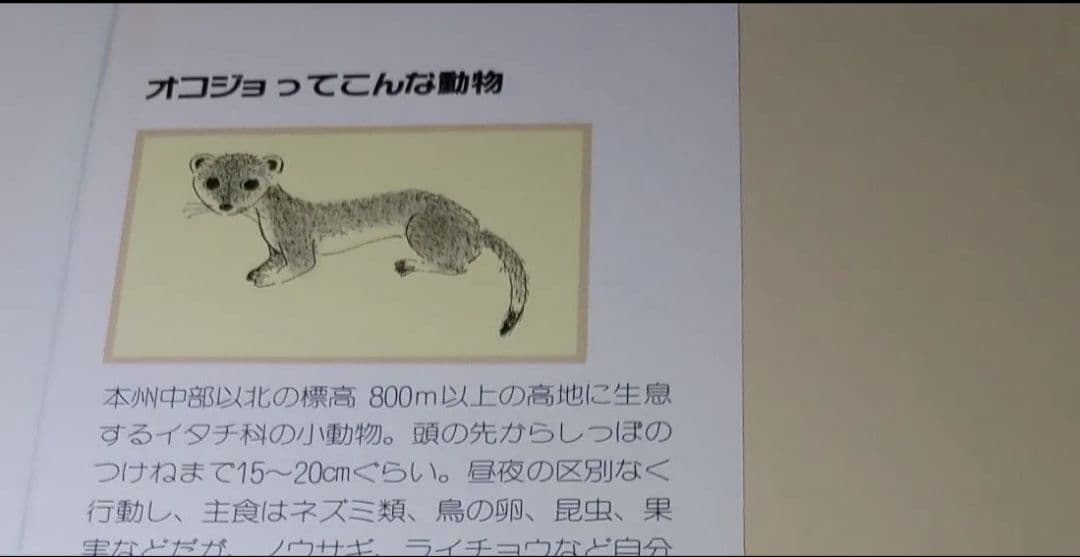 オコジョってこんな動物
本州中部以北の標高 800m以上の高地に生息
するイタチ科の小動物。頭の先からしっぽの
つけねまで15〜20cmぐらい。昼夜の区別なく
行動し、主食はネズミ類、鳥の卵、昆虫、果
実などだが、ノウサギ、ライチョウなど自分